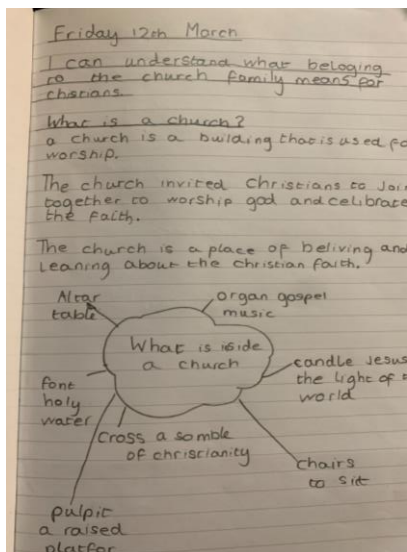 Friday 12th March
I can understand what beloging
to the church family means for
chstians.
What is a church?
a church is a building that is used fo
worship.
The church invited Christians to Join
together to worship god and celibrate
the faith.
The church is a place of beliving and
Leaning about the christian faith.
Altar
table
organ gospel
music
What is iside
a church
candle Jesus
the light of t
world
font
holy
water
Cross a somble
of christianity
chairs
to sit
pulpit
a raised
platfor